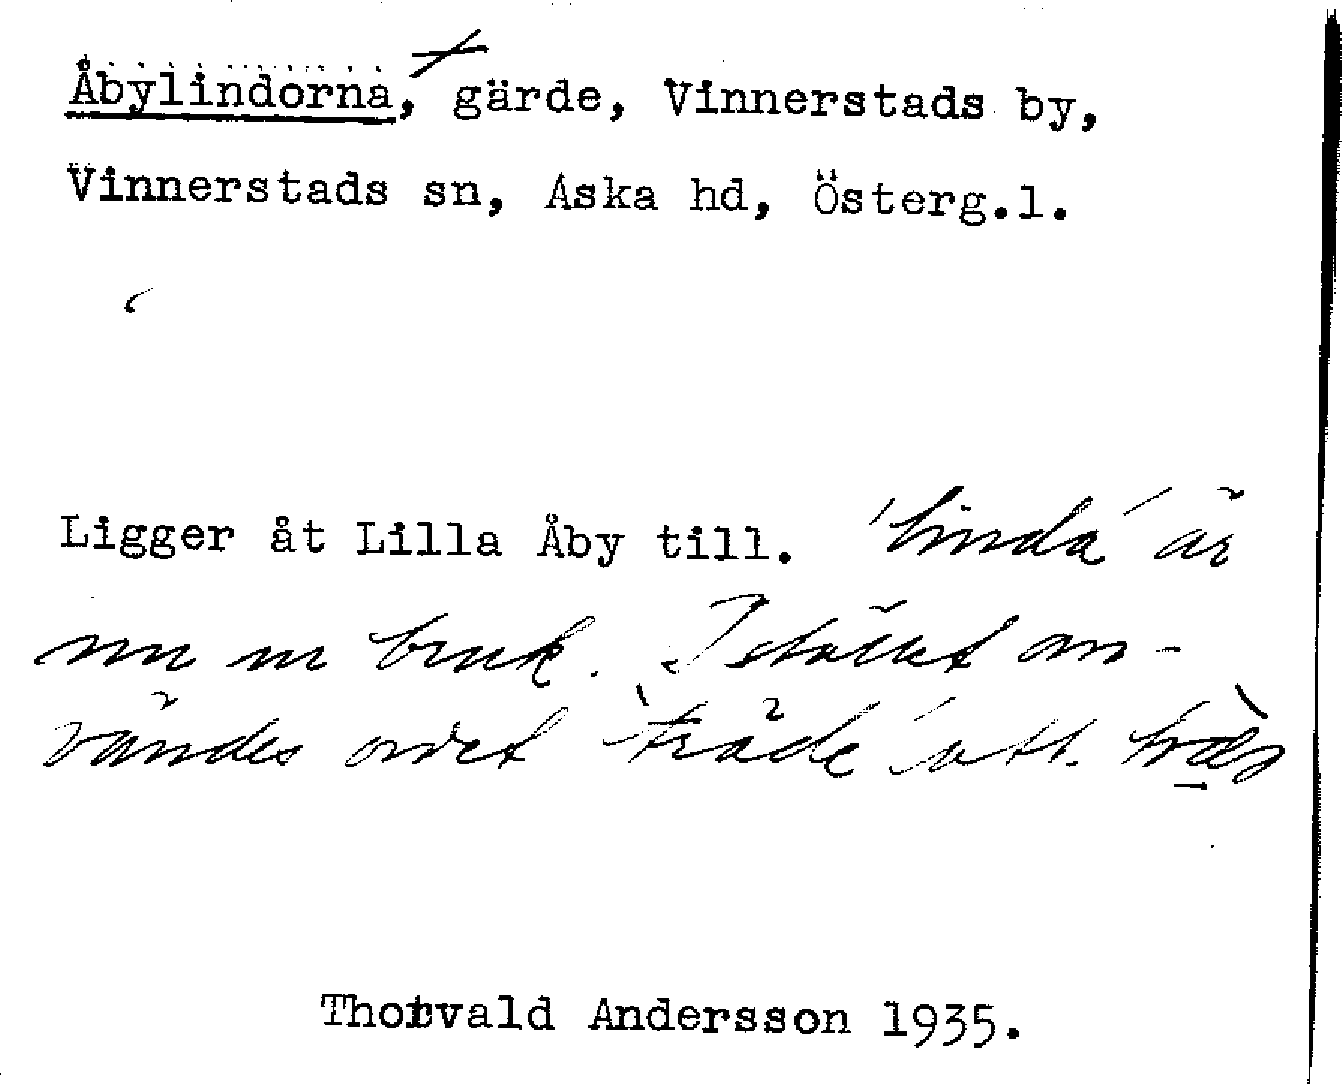 Åbylindorna, gärde, Vinnerstads by,
Vinnerstads sn, Aska hd, Österg.l.
Ligger åt Lilla Åby till. 'linda' är
nu ur bruk. I stället an-
vändes ordet 'träde' utt.
Thorvald Andersson 1935.